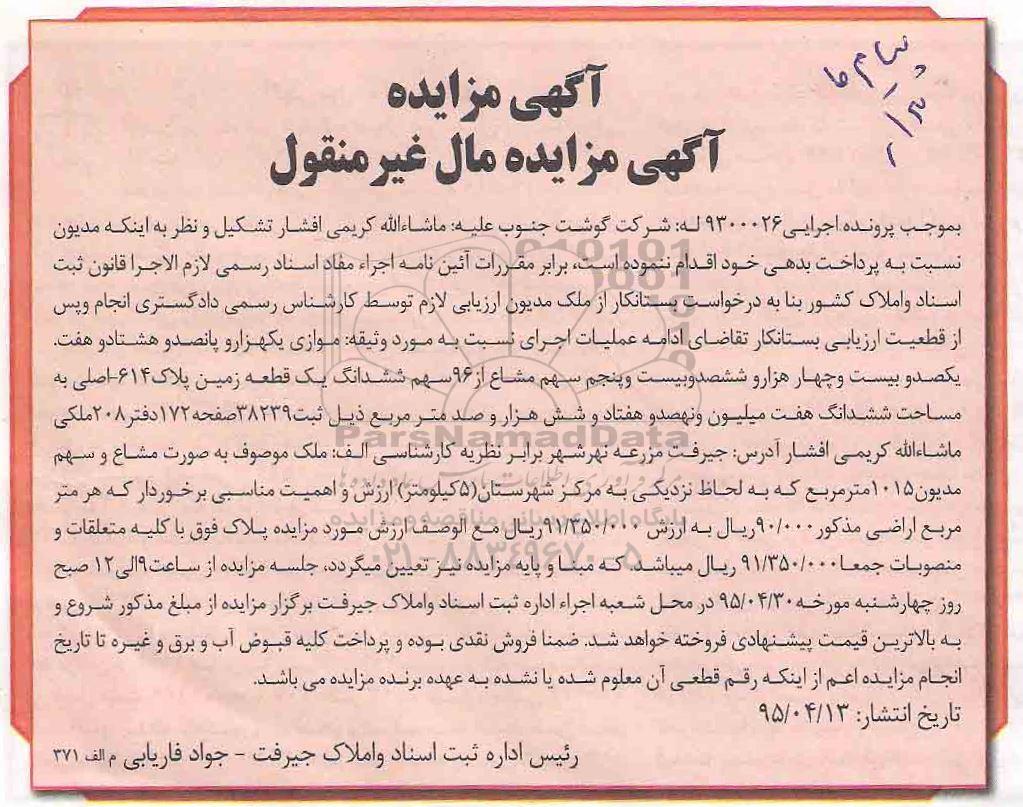 پیام ما
آگهی مزایده
آگهی مزایده مال غیرمنقول
بموجب پرونده اجرایی۹۳۰۰۰۲۶ له: شرکت گوشت جنوب علیه: ماشاءالله کریمی افشار تشکیل و نظر به اینکه مدیون
نسبت به پرداخت بدهی خود اقدام ننموده است، برابر مقررات آئین نامه اجراء مفاد اسناد رسمی لازم الاجرا قانون ثبت
اسناد واملاک کشور بنا به درخواست بستانکار از ملک مدیون ارزیابی لازم توسط کارشناس رسمی دادگستری انجام وپس
از قطعیت ارزیابی بستانکار تقاضای ادامه عملیات اجرای نسبت به مورد وثیقه: موازی یکهزارو پانصدو هشتادو هفت.
یکصدو بیست وچهار هزارو ششصدوبیست وپنجم سهم مشاع از۹۶سهم ششدانگ یک قطعه زمین پلاک۶۱۴-اصلی به
مساحت ششدانگ هفت میلیون ونهصدو هفتاد و شش هزار و صد متر مربع ذیل ثبت۳۸۲۳۹صفحه۱۷۲دفتر۲۰۸ملکی
ماشاءالله کریمی افشار آدرس: جیرفت مزرعه نهرشهر برابر نظریه کارشناسی الف: ملک موصوف به صورت مشاع و سهم
مدیون۱۰۱۵مترمربع که به لحاظ نزدیکی به مرکز شهرستان(۵کیلومتر) ارزش و اهمیت مناسبی برخوردار که هر متر
مربع اراضی مذکور ۹۰/۰۰۰ریال به ارزش ۹۱/۳۵۰/۰۰۰ریال مع الوصف ارزش مورد مزایده پلاک فوق با کلیه متعلقات و
منصوبات جمعا۹۱/۳۵۰/۰۰۰ ریال میباشد. که مبنا و پایه مزایده نیز تعیین میگردد، جلسه مزایده از ساعت۹الی۱۲ صبح
روز چهارشنبه مورخه۹۵/۰۴/۳۰ در محل شعبه اجراء اداره ثبت اسناد واملاک جیرفت برگزار مزایده از مبلغ مذکور شروع و
به بالاترین قیمت پیشنهادی فروخته خواهد شد. ضمنا فروش نقدی بوده و پرداخت کلیه قبوض آب و برق و غیره تا تاریخ
انجام مزایده اعم از اینکه رقم قطعی آن معلوم شده یا نشده به عهده برنده مزایده می باشد.
تاریخ انتشار: ۹۵/۰۴/۱۳
رئیس اداره ثبت اسناد واملاک جیرفت - جواد فاریابی م الف ۳۷۱
ParsNamadData
پایگاه اطلاع رسانی مناقصه و مزایده
۰۲۱-۸۸۳۴۹۶۷۰-۵